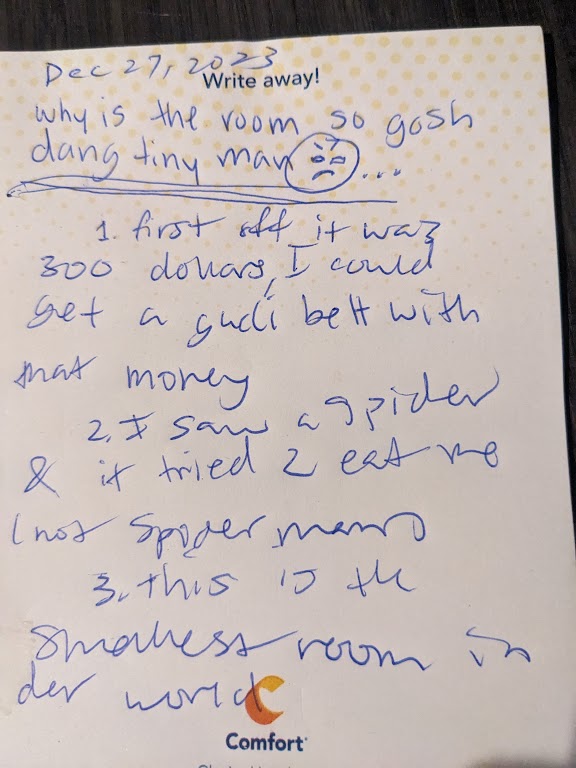 Dec 27, 2023
Write away!
why is the room so gosh
dang tiny man ...
1. first off it was
300 dollars, I could
get a gudi belt with
that money
2. I saw a spider
& it tried 2 eat me
(not spiderman)
3. this is the
smallest room in
der world
Comfort